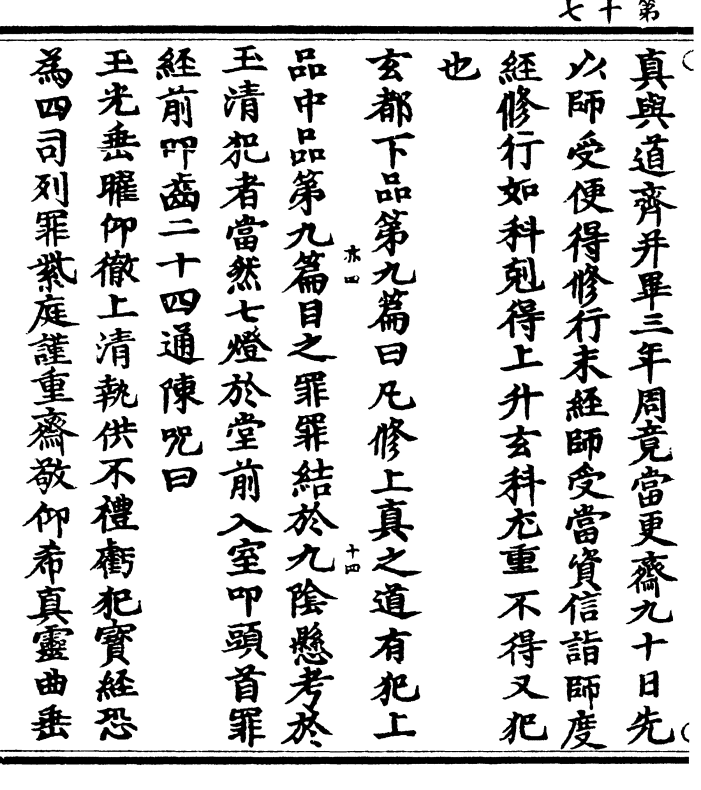 第十七
真與道齊并畢三年周竟當更齋九十日先
以師受便得修行未經師受當賫信詣師度
經修行如科剋得上升玄科尤重不得又犯
也
玄都下品第九篇曰凡修上真之道有犯上
亦四
十四
品中品第九篇目之罪罪結於九陰懸考於
玉清犯者當然七燈於堂前入室叩頭首罪
經前叩齒二十四通陳呪曰
玉光垂曜仰徹上清執供不禮虧犯寶經恐
為四司列罪紫庭謹重齋敬仰希真靈曲垂